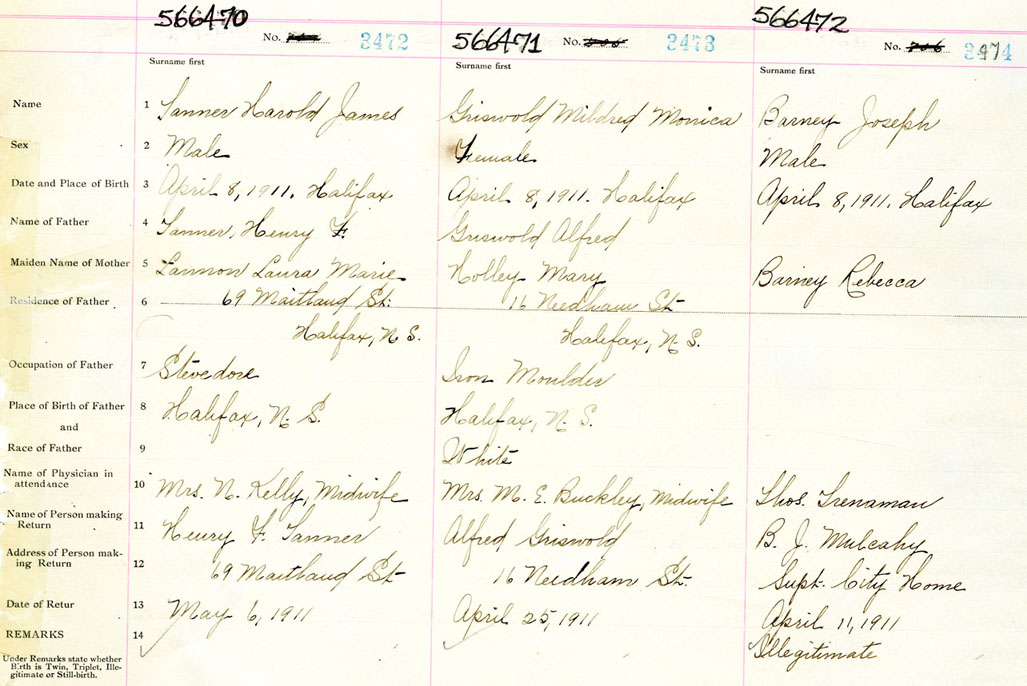 566470 566471 566472
No. 3472 No. 3473 No. 3474
Surname first Surname first Surname first
Name 1 Tanner Harold James Griswold Mildred Monica Barney Joseph
Sex 2 Male Female Male
Date and Place of Birth 3 April 8, 1911. Halifax April 8, 1911. Halifax April 8, 1911. Halifax
Name of Father 4 Tanner, Henry F. Griswold Alfred
Maiden Name of Mother 5 Lannon Laura Marie Holley Mary Barney Rebecca
Residence of Father 6 69 Maitland St. 16 Needham St
Halifax, N. S. Halifax, N. S.
Occupation of Father 7 Stevedore Iron Moulder
Place of Birth of Father 8 Halifax, N. S. Halifax, N. S.
and
Race of Father 9 White
Name of Physician in
attendance 10 Mrs. N. Kelly, Midwife Mrs. M. E. Buckley, Midwife Thos. Trenaman
Name of Person making
Return 11 Henry F. Tanner Alfred Griswold B. J. Mulcahy
Address of Person mak-
ing Return 12 69 Maitland St 16 Needham St. Supt. City Home
Date of Retur 13 May 6, 1911 April 25, 1911 April 11, 1911
REMARKS 14 Illegitimate
Under Remarks state whether
Birth is Twin, Triplet, Ille-
gitimate or Still-birth.